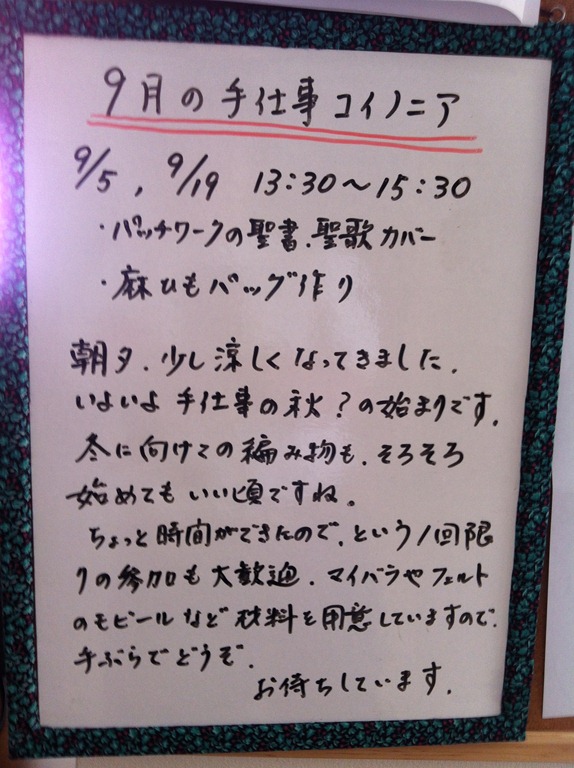 9月の手仕事コイノニア
9/5, 9/19 13:30～15:30
・パッチワークの聖書、聖歌カバー
・麻ひもバッグ作り
朝夕、少し涼しくなってきました。
いよいよ手仕事の秋?の始まりです。
冬に向けての編み物も、そろそろ
始めてもいい頃ですね。
ちょっと時間ができたので、という1回限
りの参加も大歓迎。マイバラやフェルト
のモビールなど材料を用意していますので、
手ぶらでどうぞ。
お待ちしています。